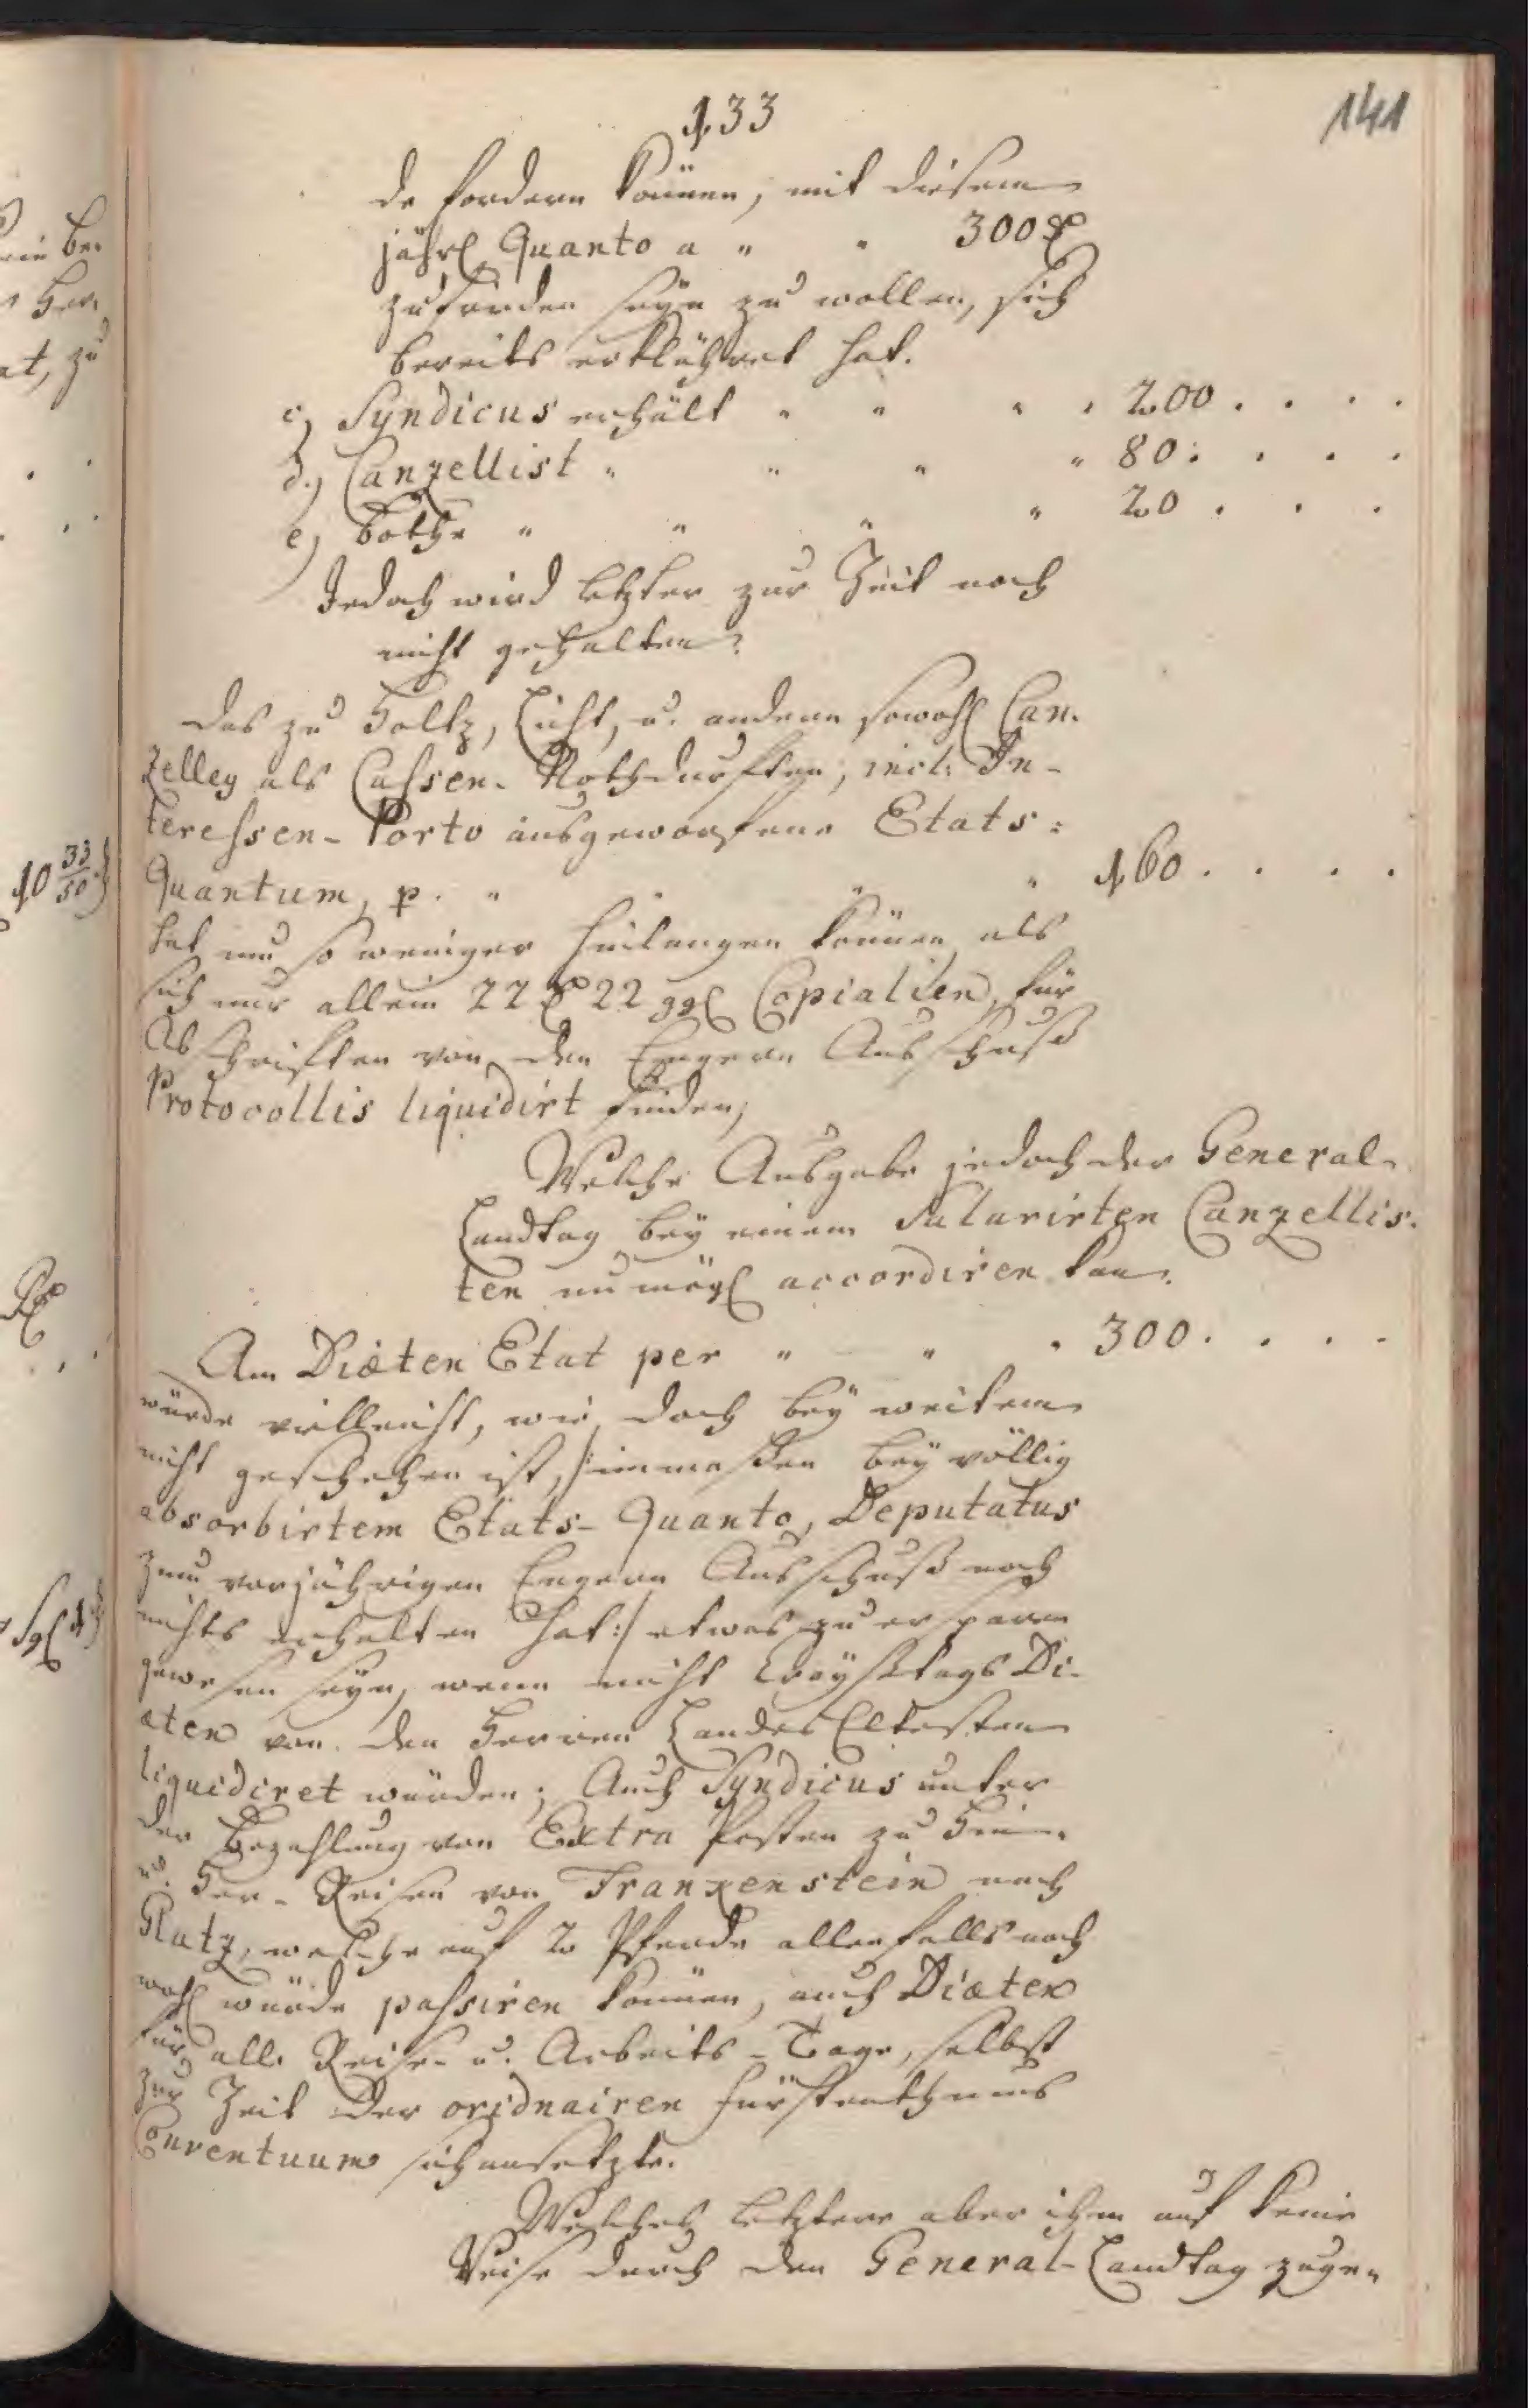 133
141
de fordern können, mit diesem
jährl. Quanto a " " 300 rt
zufrieden seyn zu wollen, sich
bereits erklähret hat.
c, Syndicus erhält " " " " 200 . . . .
d.) Canzellist " " " " 80 . . . .
e) Bothe " " " " 20 . . .
Jedoch wird letzter zur Zeit noch
nicht gehalten.
Das zu Holtz, Licht, u. andern sowohl Can-
zelley als Cassen-Nothdurften, incl: In-
teressen-Porto ausgeworfene Etats:
Quantum, p. " " 160 . . . .
hat um so weniger hinlangen können als
sich nur allein 22 rt 22 ggl Copialien, für
Abschriften von den Engern Ausschuß
Protocollis liquidirt finden,
Welche Ausgabe jedoch der General-
Landtag bey einem Salarirten Canzellis-
ten unmögl accordiren kan.
Am Diæten Etat per " " " 300 . . . .
würde vielleicht, wie doch bey weitem
nicht geschehen ist, /:immaßen bey völlig
absorbirtem Etats-Quanto, Deputatus
zum vorjährigen Engern Ausschuß noch
nichts erhalten hat:/ etwas zu ersparen
gewesen seyn, wenn nicht Creyßtags Di-
æten von den Herren Landes Eltesten
liquidiret würden; Auch Syndicus unter
der Bezahlung von Extra Posten zu Hin-
u. Her-Reisen von Frankenstein nach
Glatz, welche auf 2 Pferde allenfalls noch
wohl würde passiren können, auch Diæten
für alle Reise- u. Arbeits-Tage, selbst
zur Zeit der oridnairen Fürstenthums
Conventuum sich ansetzte.
Welches letztere aber ihm auf keine
Weise durch den General-Landtag zuge-